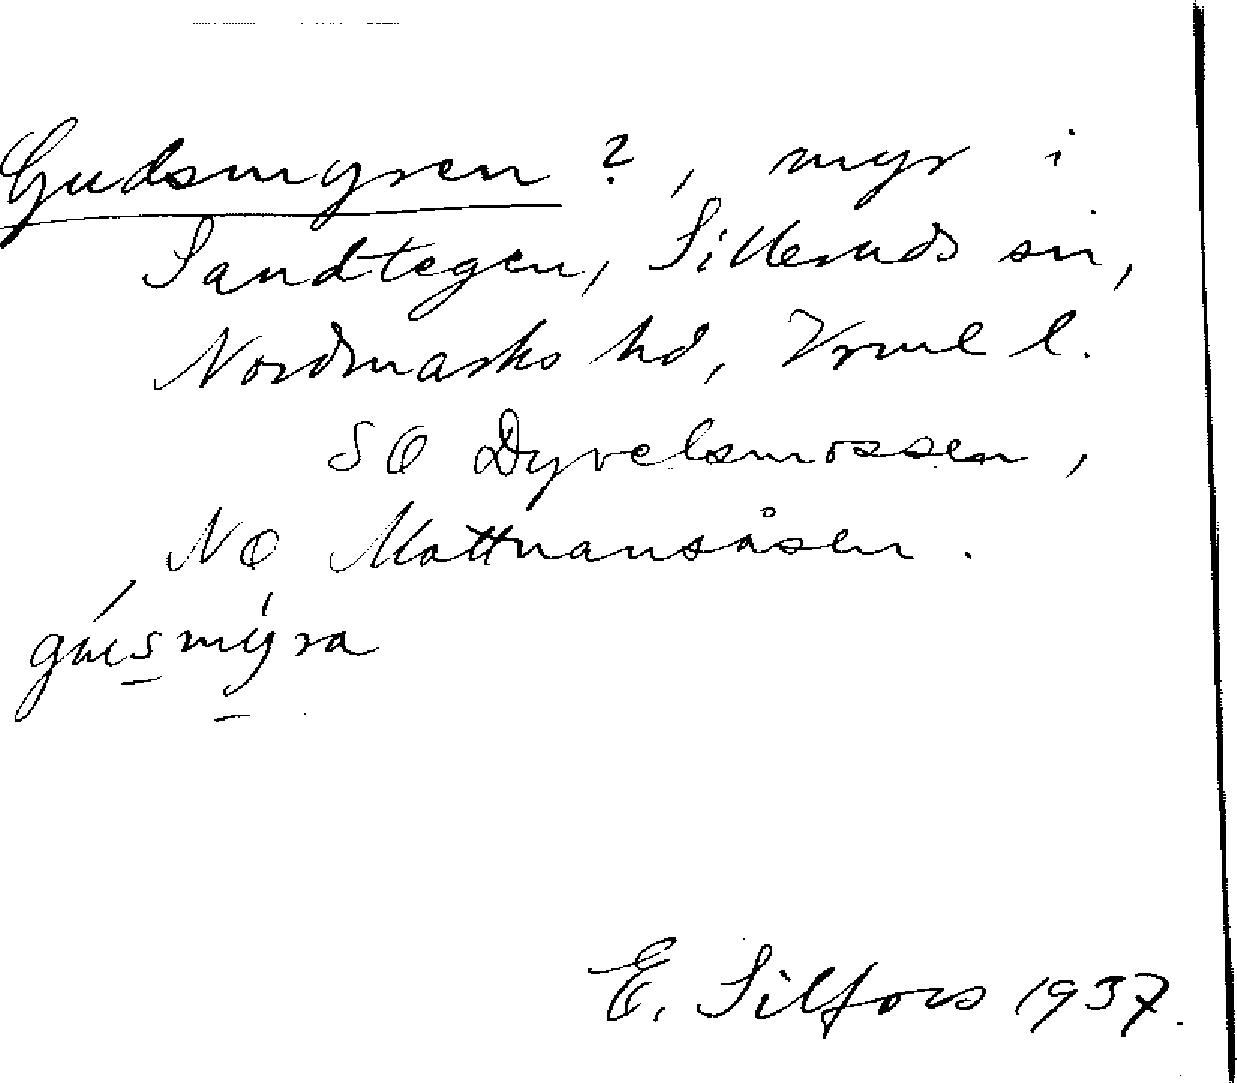 Gudsmyren ?, myr i
Sandtegen, Silleruds sn,
Nordmarks hd, Vrml l.
SO Dyvelsmossen,
NO Mattnansåsen.
E. Silfors 1937.